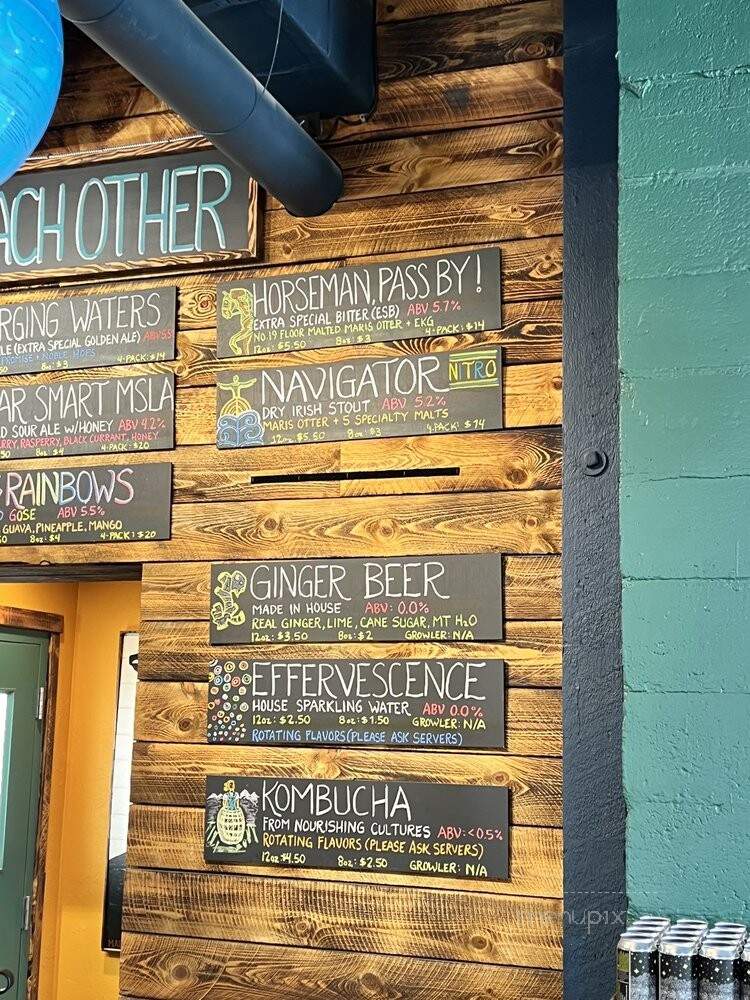 ACH OTHER
RGING WATERS
LE (EXTRA SPECIAL GOLDEN ALE) ABV 5.5
PROMISE + NOBLE HOPS
50 8oz: $3 4-PACK: $14
AR SMART MSLA
D SOUR ALE W/HONEY ABV 4.2%
RRY, RASPERRY, BLACK CURRANT, HONEY
50 8oz: $4 4-PACK: $20
RAINBOWS
GOSE ABV 5.5%
GUAVA, PINEAPPLE, MANGO
50 8oz: $4 4-PACK: $20
HORSEMAN, PASS BY!
EXTRA SPECIAL BITTER (ESB) ABV 5.7%
NO.19 FLOOR MALTED MARIS OTTER + EKG
12oz: $5.50 8oz: $3 4-PACK: $14
NAVIGATOR NITRO
DRY IRISH STOUT ABV 5.2%
MARIS OTTER + 5 SPECIALTY MALTS
12oz: $5.50 8oz: $3 4-PACK: $14
GINGER BEER
MADE IN HOUSE ABV: 0.0%
REAL GINGER, LIME, CANE SUGAR, MT H2O
12oz: $3.50 8oz: $2 GROWLER: N/A
EFFERVESCENCE
HOUSE SPARKLING WATER ABV 0.0%
12oz: $2.50 8oz: $1.50 GROWLER: N/A
ROTATING FLAVORS (PLEASE ASK SERVERS)
KOMBUCHA
FROM NOURISHING CULTURES ABV: <0.5%
ROTATING FLAVORS (PLEASE ASK SERVERS)
12oz $4.50 8oz: $2.50 GROWLER: N/A